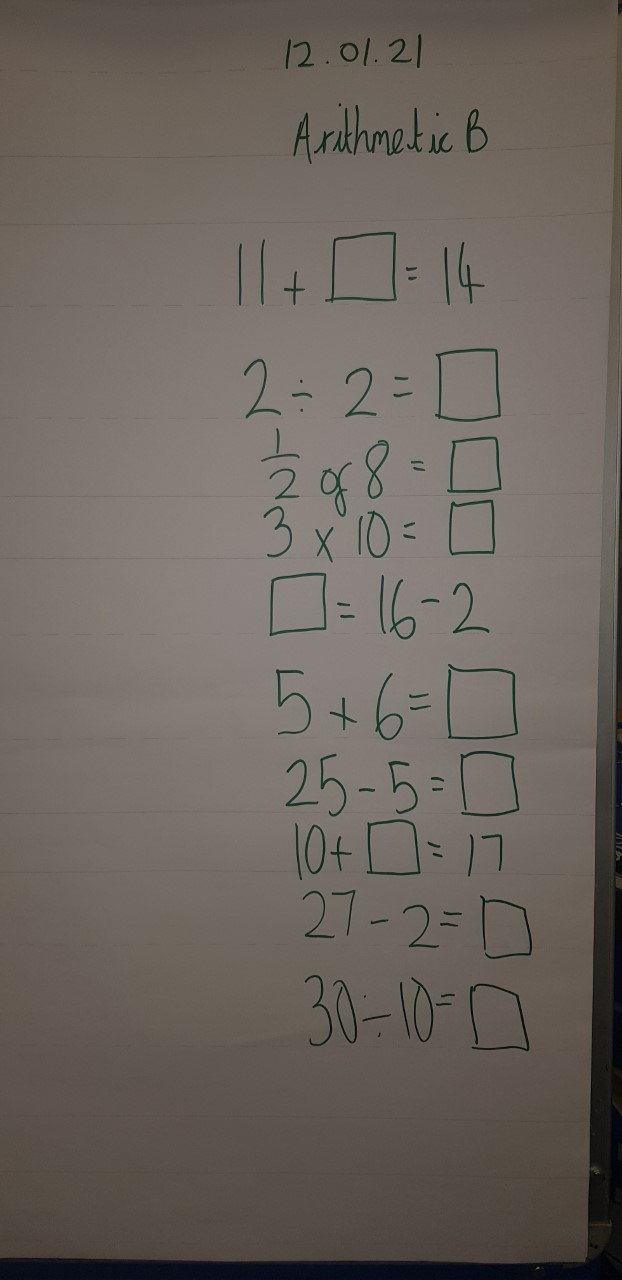 12.01.21
Arithmetic B
11 + □ = 14
2 ÷ 2 = □
1/2 of 8 = □
3 x 10 = □
□ = 16 - 2
5 + 6 = □
25 - 5 = □
10 + □ = 17
27 - 2 = □
30 ÷ 10 = □